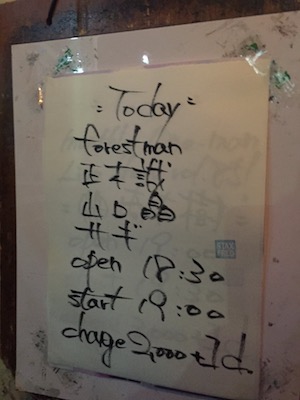 "Today"
forestman
山口晶
サギ
open 18:30
start 19:00
charge 2,000+1d.